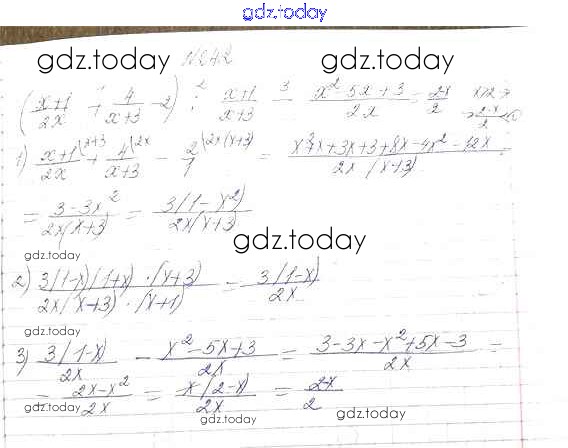 gdz.today
gdz.today №242 gdz.today
(x+1/2x + 4/x+3 - 2) : x+1/x+3 - x² 5x + 3/2x = 2-x/2
1) x+1/2x \x+3 + 4/x+3 \2x - 2/1 \2x(x+3) = +3x+3+8x-4x²-12x/2x(x+3) =
= 3-3x²/2x(x+3) = 3(1-x²)/2x(x+3)
gdz.today
gdz.today
2) 3(1-x)(1+x) · (x+3)/2x(x+3) · (x+1) = 3(1-x)/2x
gdz.today
gdz.today
3) 3(1-x)/2x - x²-5x+3/2x = 3-3x-x²+5x-3/2x =
= 2x-x²/2x = x(2-x)/2x = 2-x/2
gdz.today gdz.today gdz.today